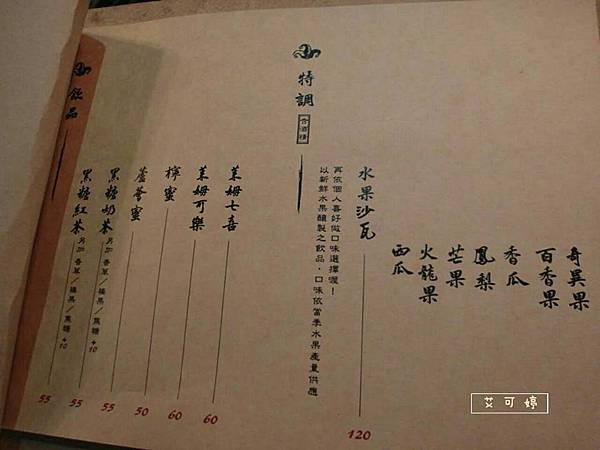 特調
含酒精
水果沙瓦 120
以新鮮水果釀製之飲品，口味依當季水果產量供應
再依個人喜好做口味選擇喔！
奇異果
百香果
香瓜
鳳梨
芒果
火龍果
西瓜
飲品
萊姆七喜 60
萊姆可樂 60
檸蜜 50
蘆薈蜜 55
黑糖奶茶 另加 香草／榛果／焦糖 +10 55
黑糖紅茶 另加 香草／榛果／焦糖 +10 55
艾可婷